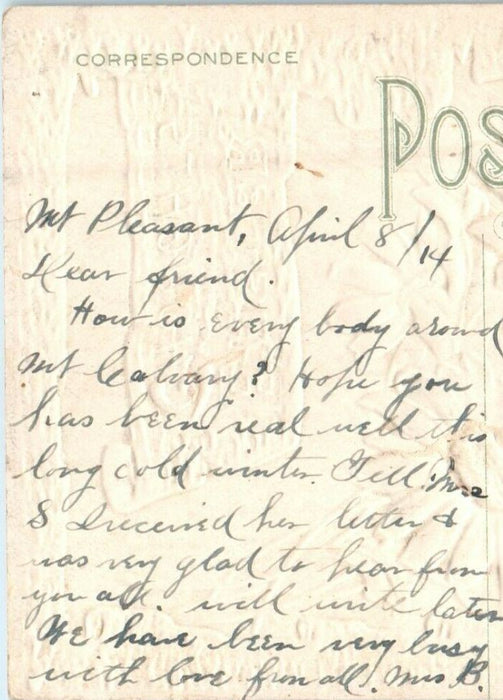 CORRESPONDENCE
POS
Mt Pleasant, April 8/14
Dear friend.
How is every body around
Mt Calvary? Hope you
has been real well this
long cold winter. Tell Mrs
S I received her letter &
was very glad to hear from
you all. will write later
We have been very busy
with love from all. Mrs. B.